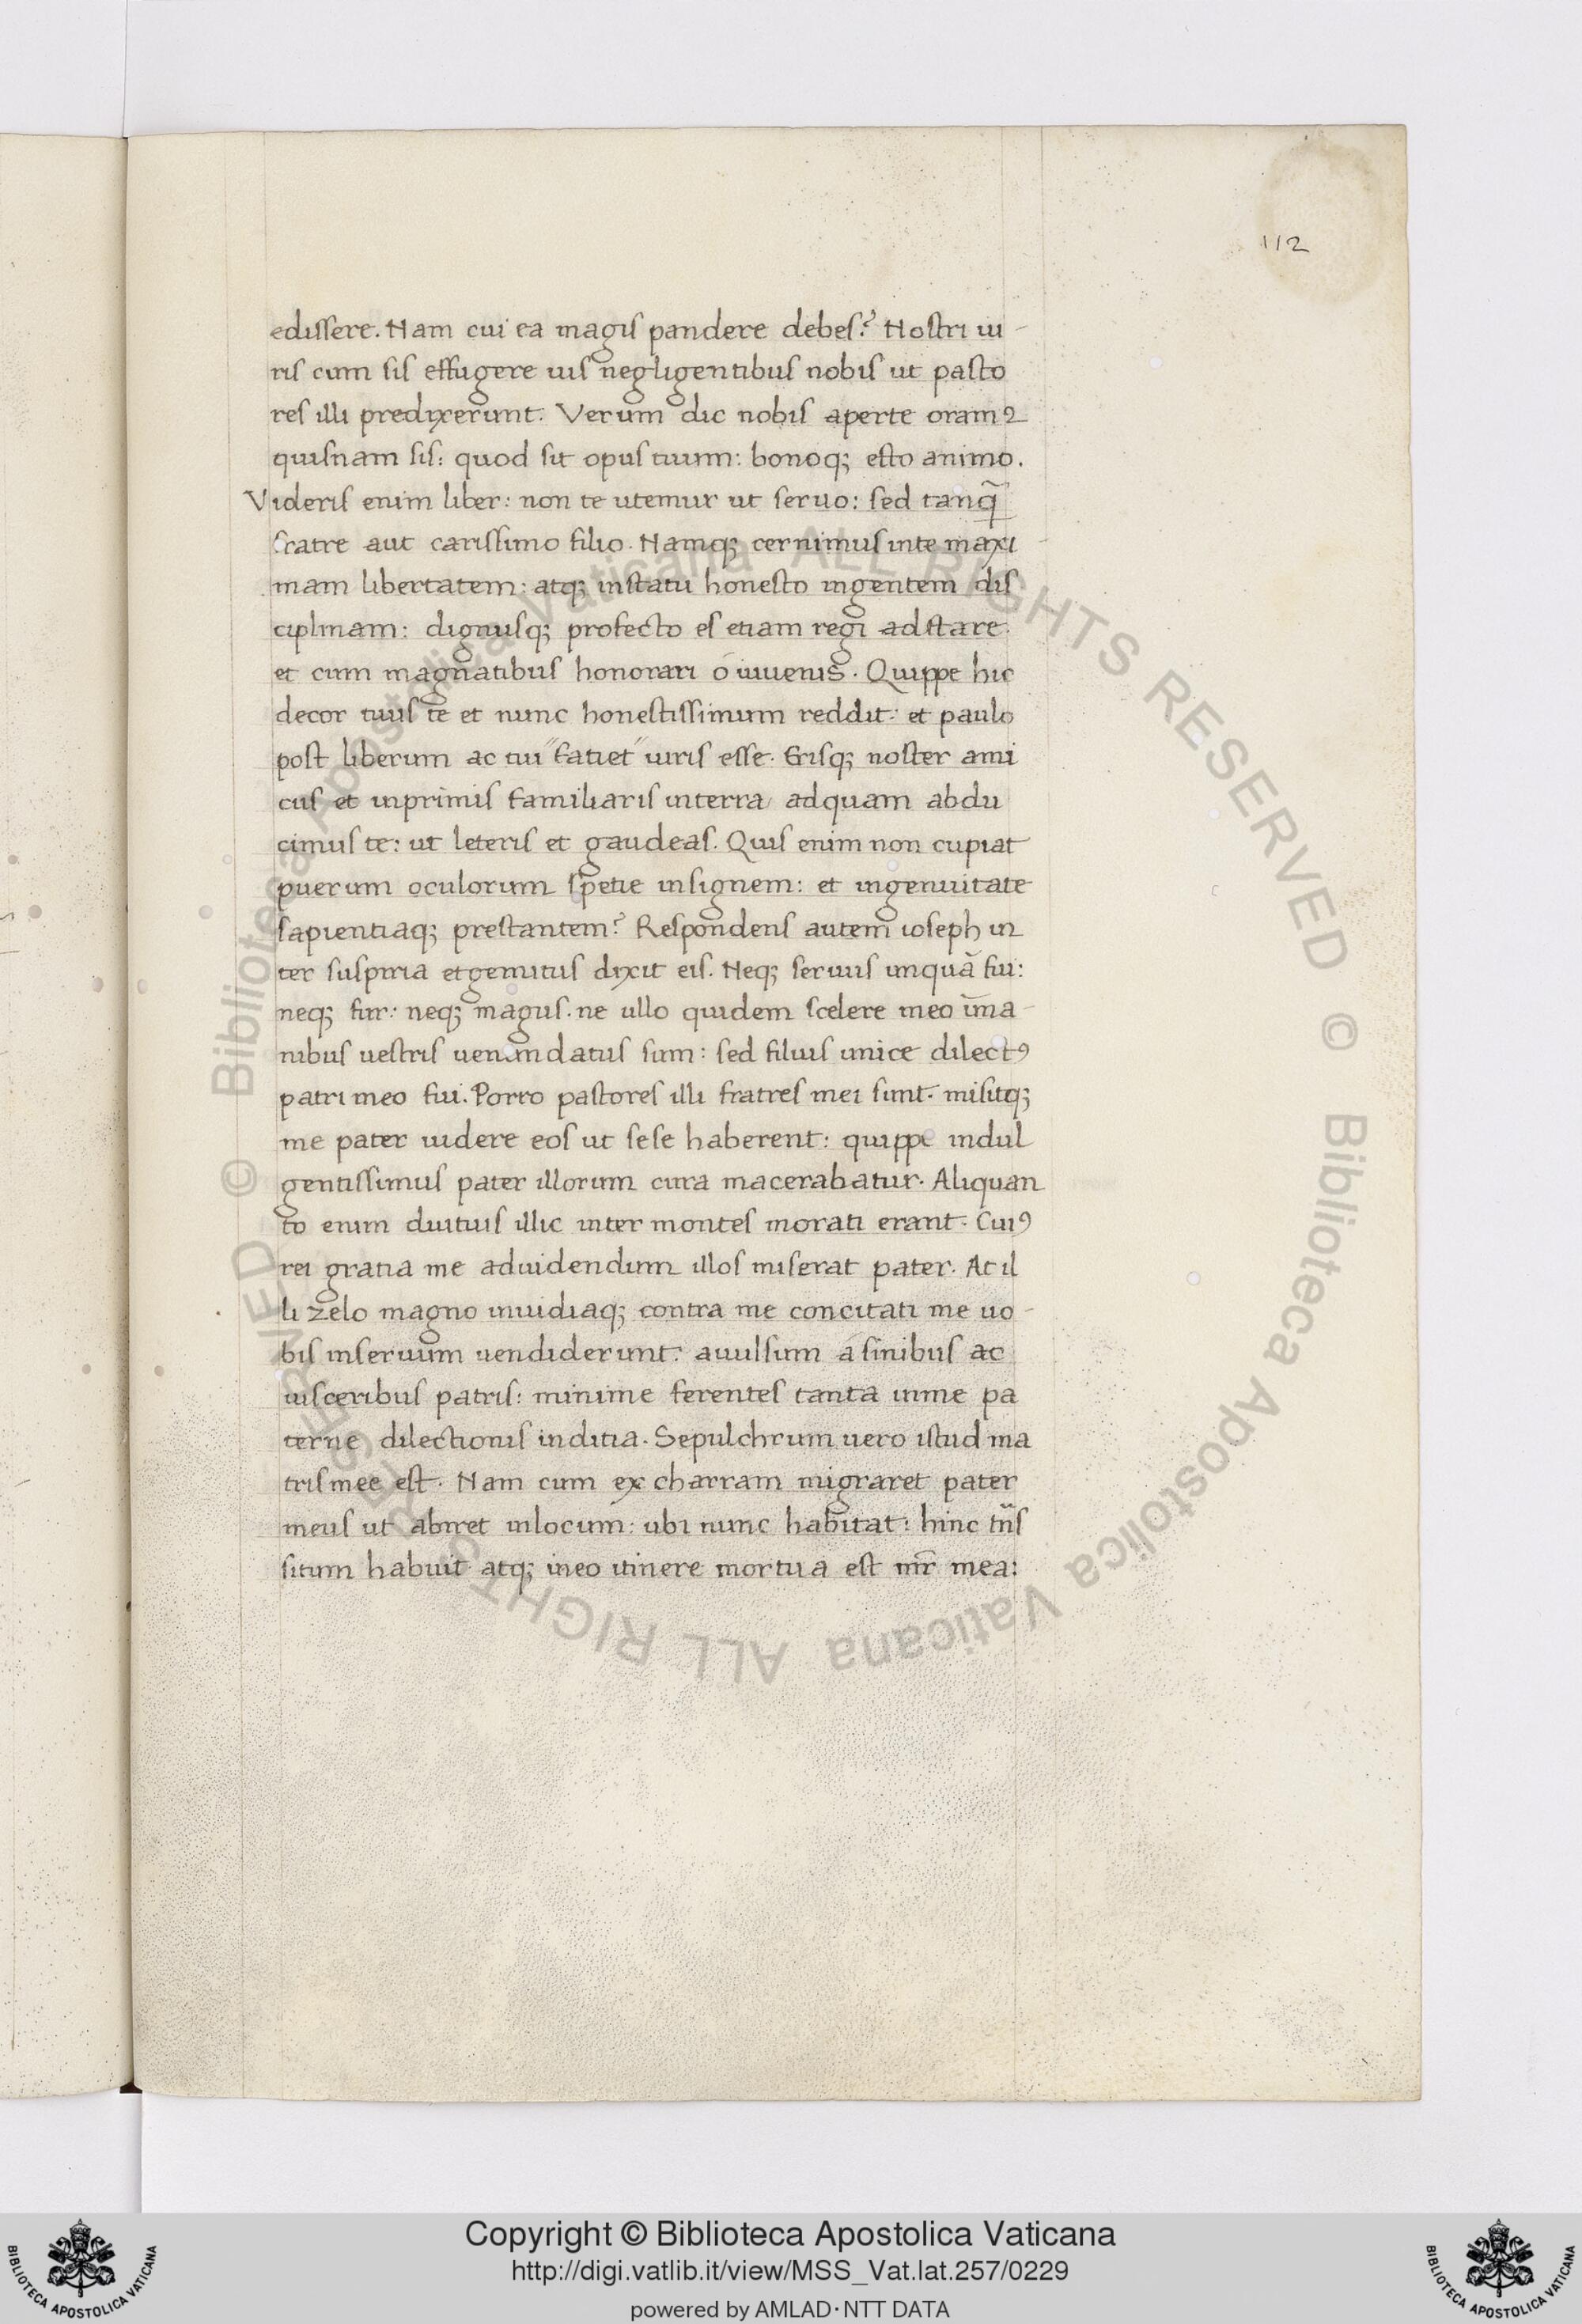 112
edissere. Nam cui ea magis pandere debes? Nostri iu-
ris cum sis effugere uis negligentibus nobis ut pasto
res illi predixerunt. Verum dic nobis aperte oramꝰ
quisnam sis: quod sit opus tuum: bonoq; esto animo.
Videris enim liber: non te utemur ut seruo: sed tanq̃
fratre aut carissimo filio. Namq; cernimus inte maxi-
mam libertatem: atq; instatu honesto ingentem dis
ciplinam: dignusq; profecto es etiam regi adstare.
et cum magnatibus honorari o iuuenis. Quippe hic
decor tuus te et nunc honestissimum reddit: et paulo
post liberum ac tui" fatiet" iuris esse. Erisq; noster ami
cus et inprimis familiaris interra/ adquam abdu
cimus te: ut leteris et gaudeas. Quis enim non cupiat
puerum oculorum spetie insignem: et ingenuitate
sapientiaq; prestantem? Respondens autem ioseph in
ter suspiria et gemitus dixit eis. Neq; seruus unquã fui:
neq; fur: neq; magus. ne ullo quidem scelere meo ĩma-
nibus uestris uenundatus sum: sed filius unice dilectꝰ
patri meo fui. Porro pastores illi fratres mei sunt. misitq;
me pater uidere eos ut sese haberent: quippe indul
gentissimus pater illorum cura macerabatur. Aliquan
to enim diutius illic inter montes morati erant. Cuiꝰ
rei gratia me aduidendum illos miserat pater. At il
li zelo magno inuidiaq; contra me concitati me uo-
bis inseruum uendiderunt: auulsum á sinibus ac
uisceribus patris: minime ferentes tanta inme pa
terne dilectionis inditia. Sepulchrum uero istud ma
tris mee est. Nam cum ex charram migraret pater
meus ut abiret inlocum: ubi nunc habitat: hinc tñs
situm habuit atq; ineo itinere mortua est mr̃ mea:
© Biblioteca Apostolica Vaticana ALL RIGHTS RESERVED © Biblioteca Apostolica Vaticana ALL RIGHTS RESERVED
Copyright © Biblioteca Apostolica Vaticana
http://digi.vatlib.it/view/MSS_Vat.lat.257/0229
powered by AMLAD·NTT DATA
BIBLIOTECA APOSTOLICA VATICANA
BIBLIOTECA APOSTOLICA VATICANA